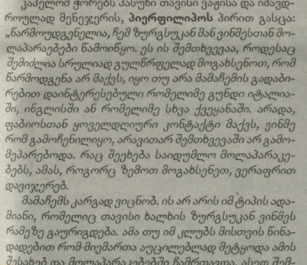 კაპელომ ჟორებს პასუხი თავისი ვაჟისა და იმავდ-
როულად მენეჯერის, პიერფილიპოს პირით გასცა:
„წარმოუდგენელია, ჩემ ზურგსუკან მან ვინმესთან მო-
ლაპარაკებები ნამოიწყო. ეს ის შემთხვევაა, როდესაც
შემიძლია სრულიად გულწრფელად მოგახსენოთ, რომ
წარმოდგენა არ მაქვს, იყო თუ არა მამაჩემის გადაბი-
რებით დაინტერესებული რომელიმე გუნდი იტალია-
ში, ინგლისში ან რომელიმე სხვა ქვეყანაში. არადა,
ფაბიოსთან ყოველდღიური კონტაქტი მაქვს, ვინმე
რომ გამოჩენილიყო, არავითარ შემთხვევაში არ გამო-
მეპარებოდა. რაც შეეხება საიდუმლო მოლაპარაკე-
ბებს, ამას, როგორც ზემოთ მოგახსენეთ, ვერაფრით
დავიჯერებ.
მამაჩემს კარგად ვიცნობ. ის არ არის იმ ტიპის ადა-
მიანი, რომელიც თავისი ხალხის ზურგსუკან ვინმეს
რამეზე გაურიგდება. ამა თუ იმ კლუბს მისთვის წინა-
დადებით რომ მიემართა აუცილებლად მეტყოდა ამის
შესახებ და მოლაპარაკებებში ჩამრთავდა. ასეთ შემ-